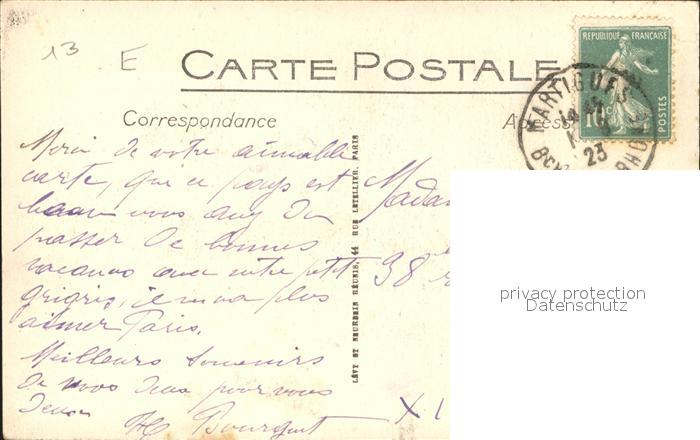 13
E
RÉPUBLIQUE FRANÇAISE
10c
POSTES
CARTE POSTALE
MARTIGUES
23
BCHES RHONE
Correspondance
Adresse
Merci de votre aimable
carte, que ce pays est
beau vous avez du
passer de bonnes
vacances avec votre petit
grigris, il ne va plus
aimer Paris.
Meilleurs Souvenirs
de nous deux pour vous
deux
Madam
38 r
XI
LÉVY ET NEURDEIN RÉUNIS, 44 RUE LETELLIER, PARIS
privacy protection
Datenschutz